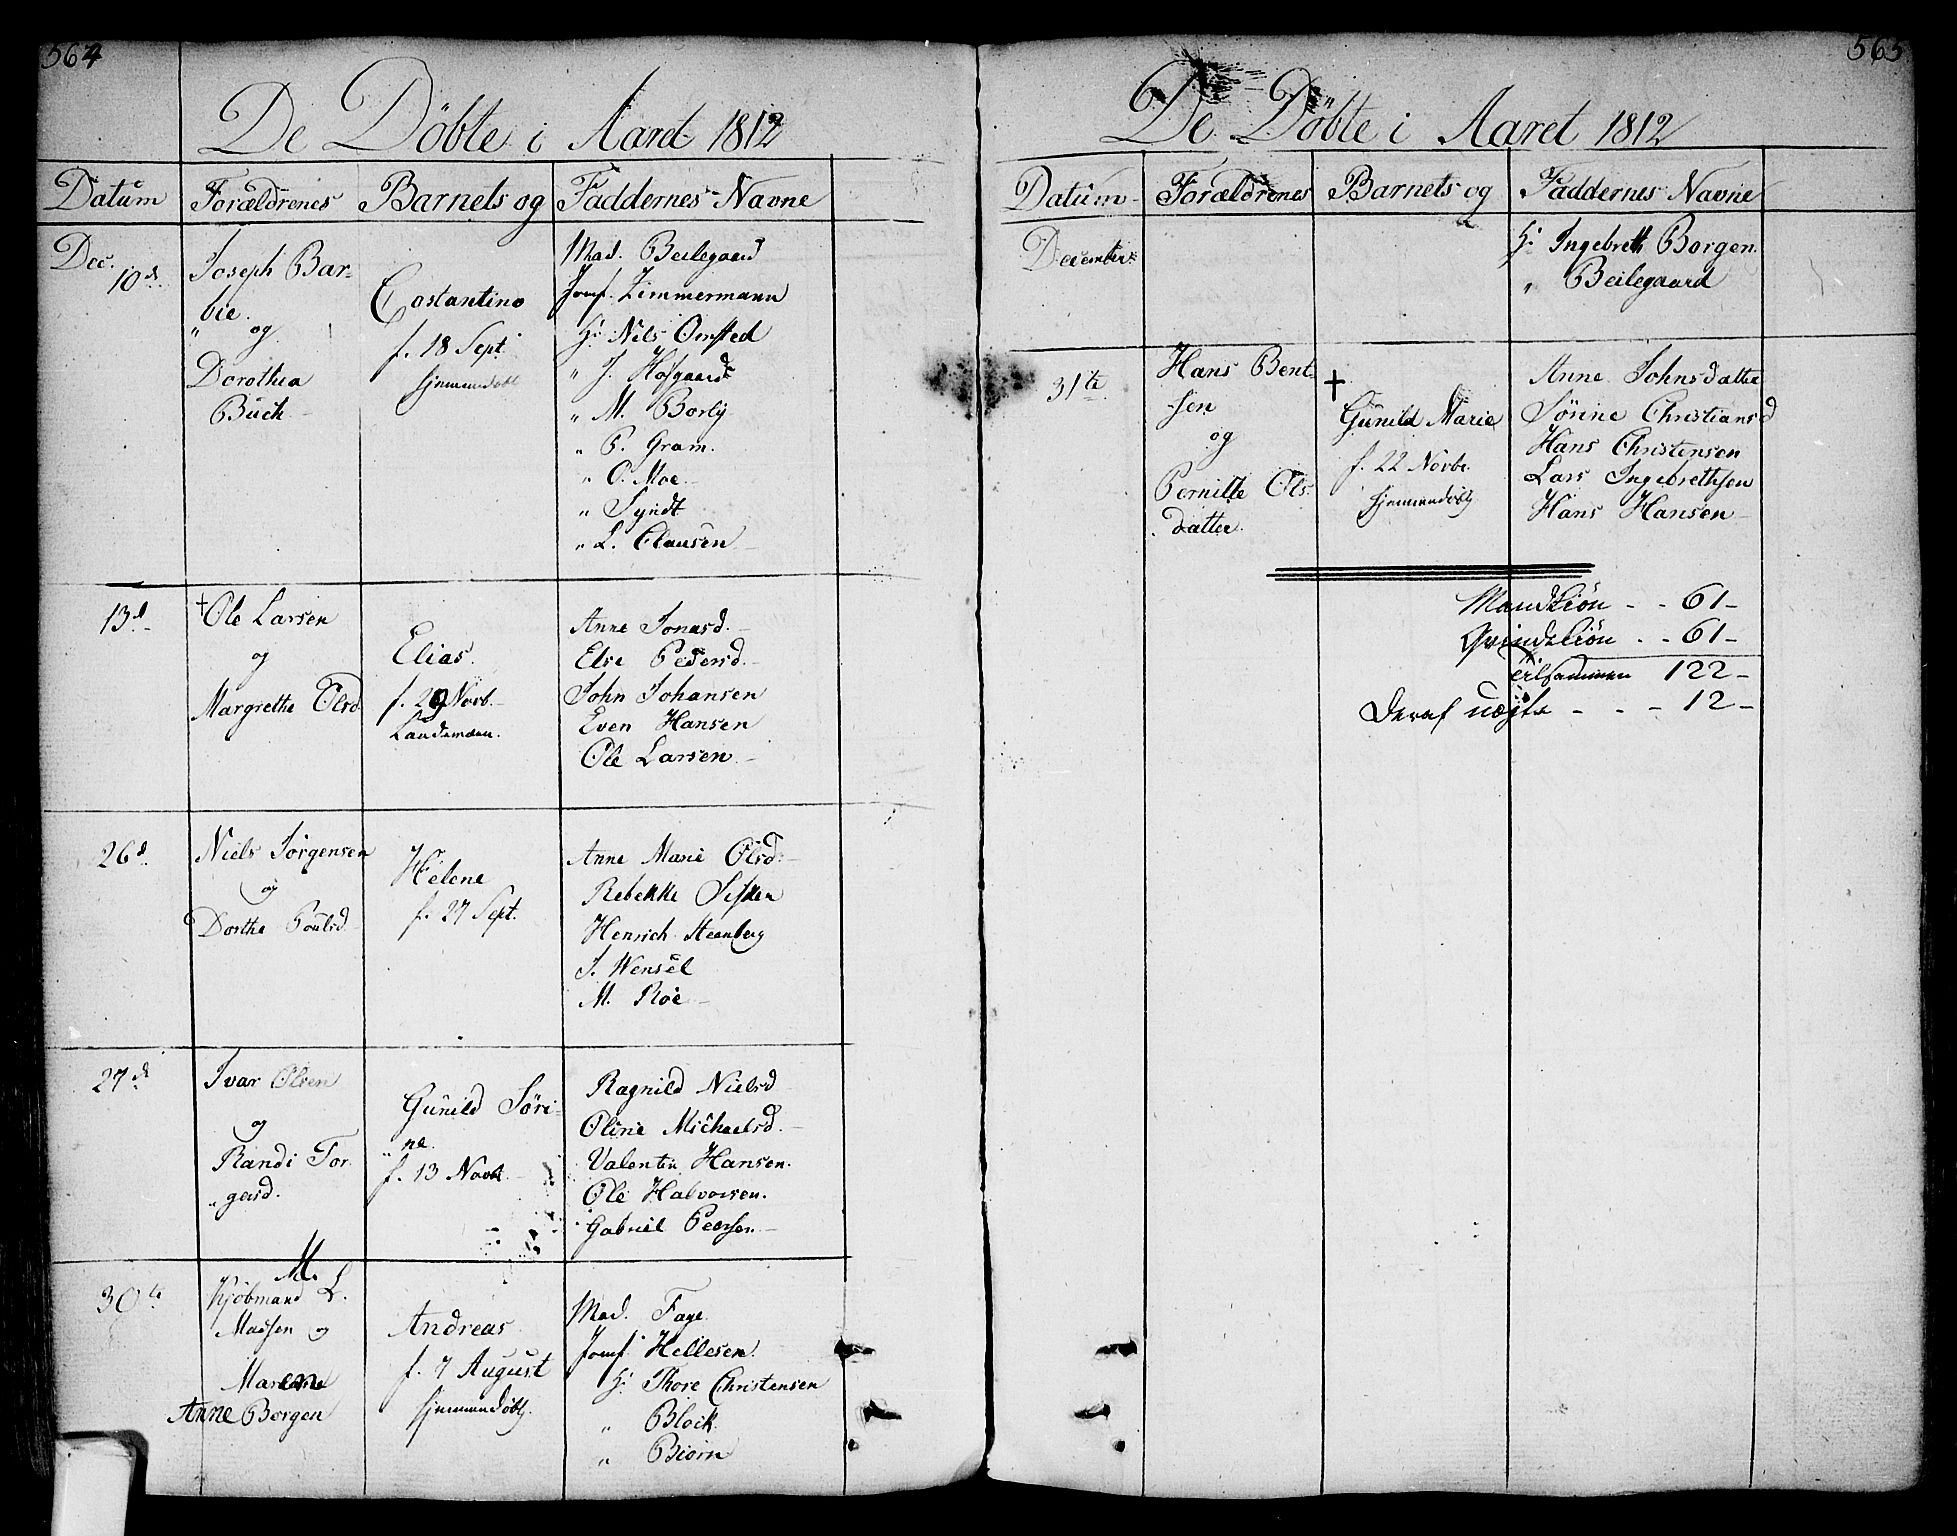 564
De Döbte i Aaret 1812
Datum Forældrenes Barnets og Faddernes Navne
Dec. 10d.
Joseph Bar-
bie.
" og
Dorothea
Buch
Costantino
f. 18 Sept.
hjemmedöbt
Mad. Beilegaard
Jomf. Zimmermann
Hr. Nils Omsted
" J. Hofgaard
" M. Borly
" P. Gram.
" O. Moe.
" Syndt
" L. Clausen
13d.
† Ole Larsen
og
Margrethe Olsd.
Elias.
f. 29 Novb.
Anne Jonasd.
Else Pedersd.
John Johansen
Even Hansen
Ole Larsen
26d.
Niels Jörgensen
og
Dorthe Poulsd.
Helene
f. 27 Sept.
Anne Marie Olsd.
Rebekke
Henrich Steenberg
J. Wensel
M. Roe
27d.
Ivar Olsen
og
Randi Tor
" gersd.
Gunild Söri-
" ne.
f. 13 Novb.
Ragnild Nielsd
Oline Michaelsd.
Valentin Hansen.
Ole Halvorsen.
Gabriel Peersen
30te
M.
Kjöbmand L.
Madsen og
Maren
Anne Borgen
Andreas
f. 7 August
hjemmedöbt.
Mad. Faye
Jomf. Hellesen
Hr. Thore Christensen
" Block
" Biörn
565
De Döbte i Aaret 1812
Datum Forældrenes Barnets og Faddernes Navne
December
Hr. Ingebreth Borgen.
" Beilegaard
31te.
Hans Bent-
sen
og
Pernille Ols-
datter.
†
Gunild Marie
f. 22 Novbr.
hjemmedöbt
Anne Johnsdatter
Sörine Christiansd
Hans Christensen
Lars Ingebrethsen
Hans Hansen
Mandkiön - - 61 -
Qvindekiön - - 61 -
tilsammen 122 -
Deraf uægte - - - 12 -